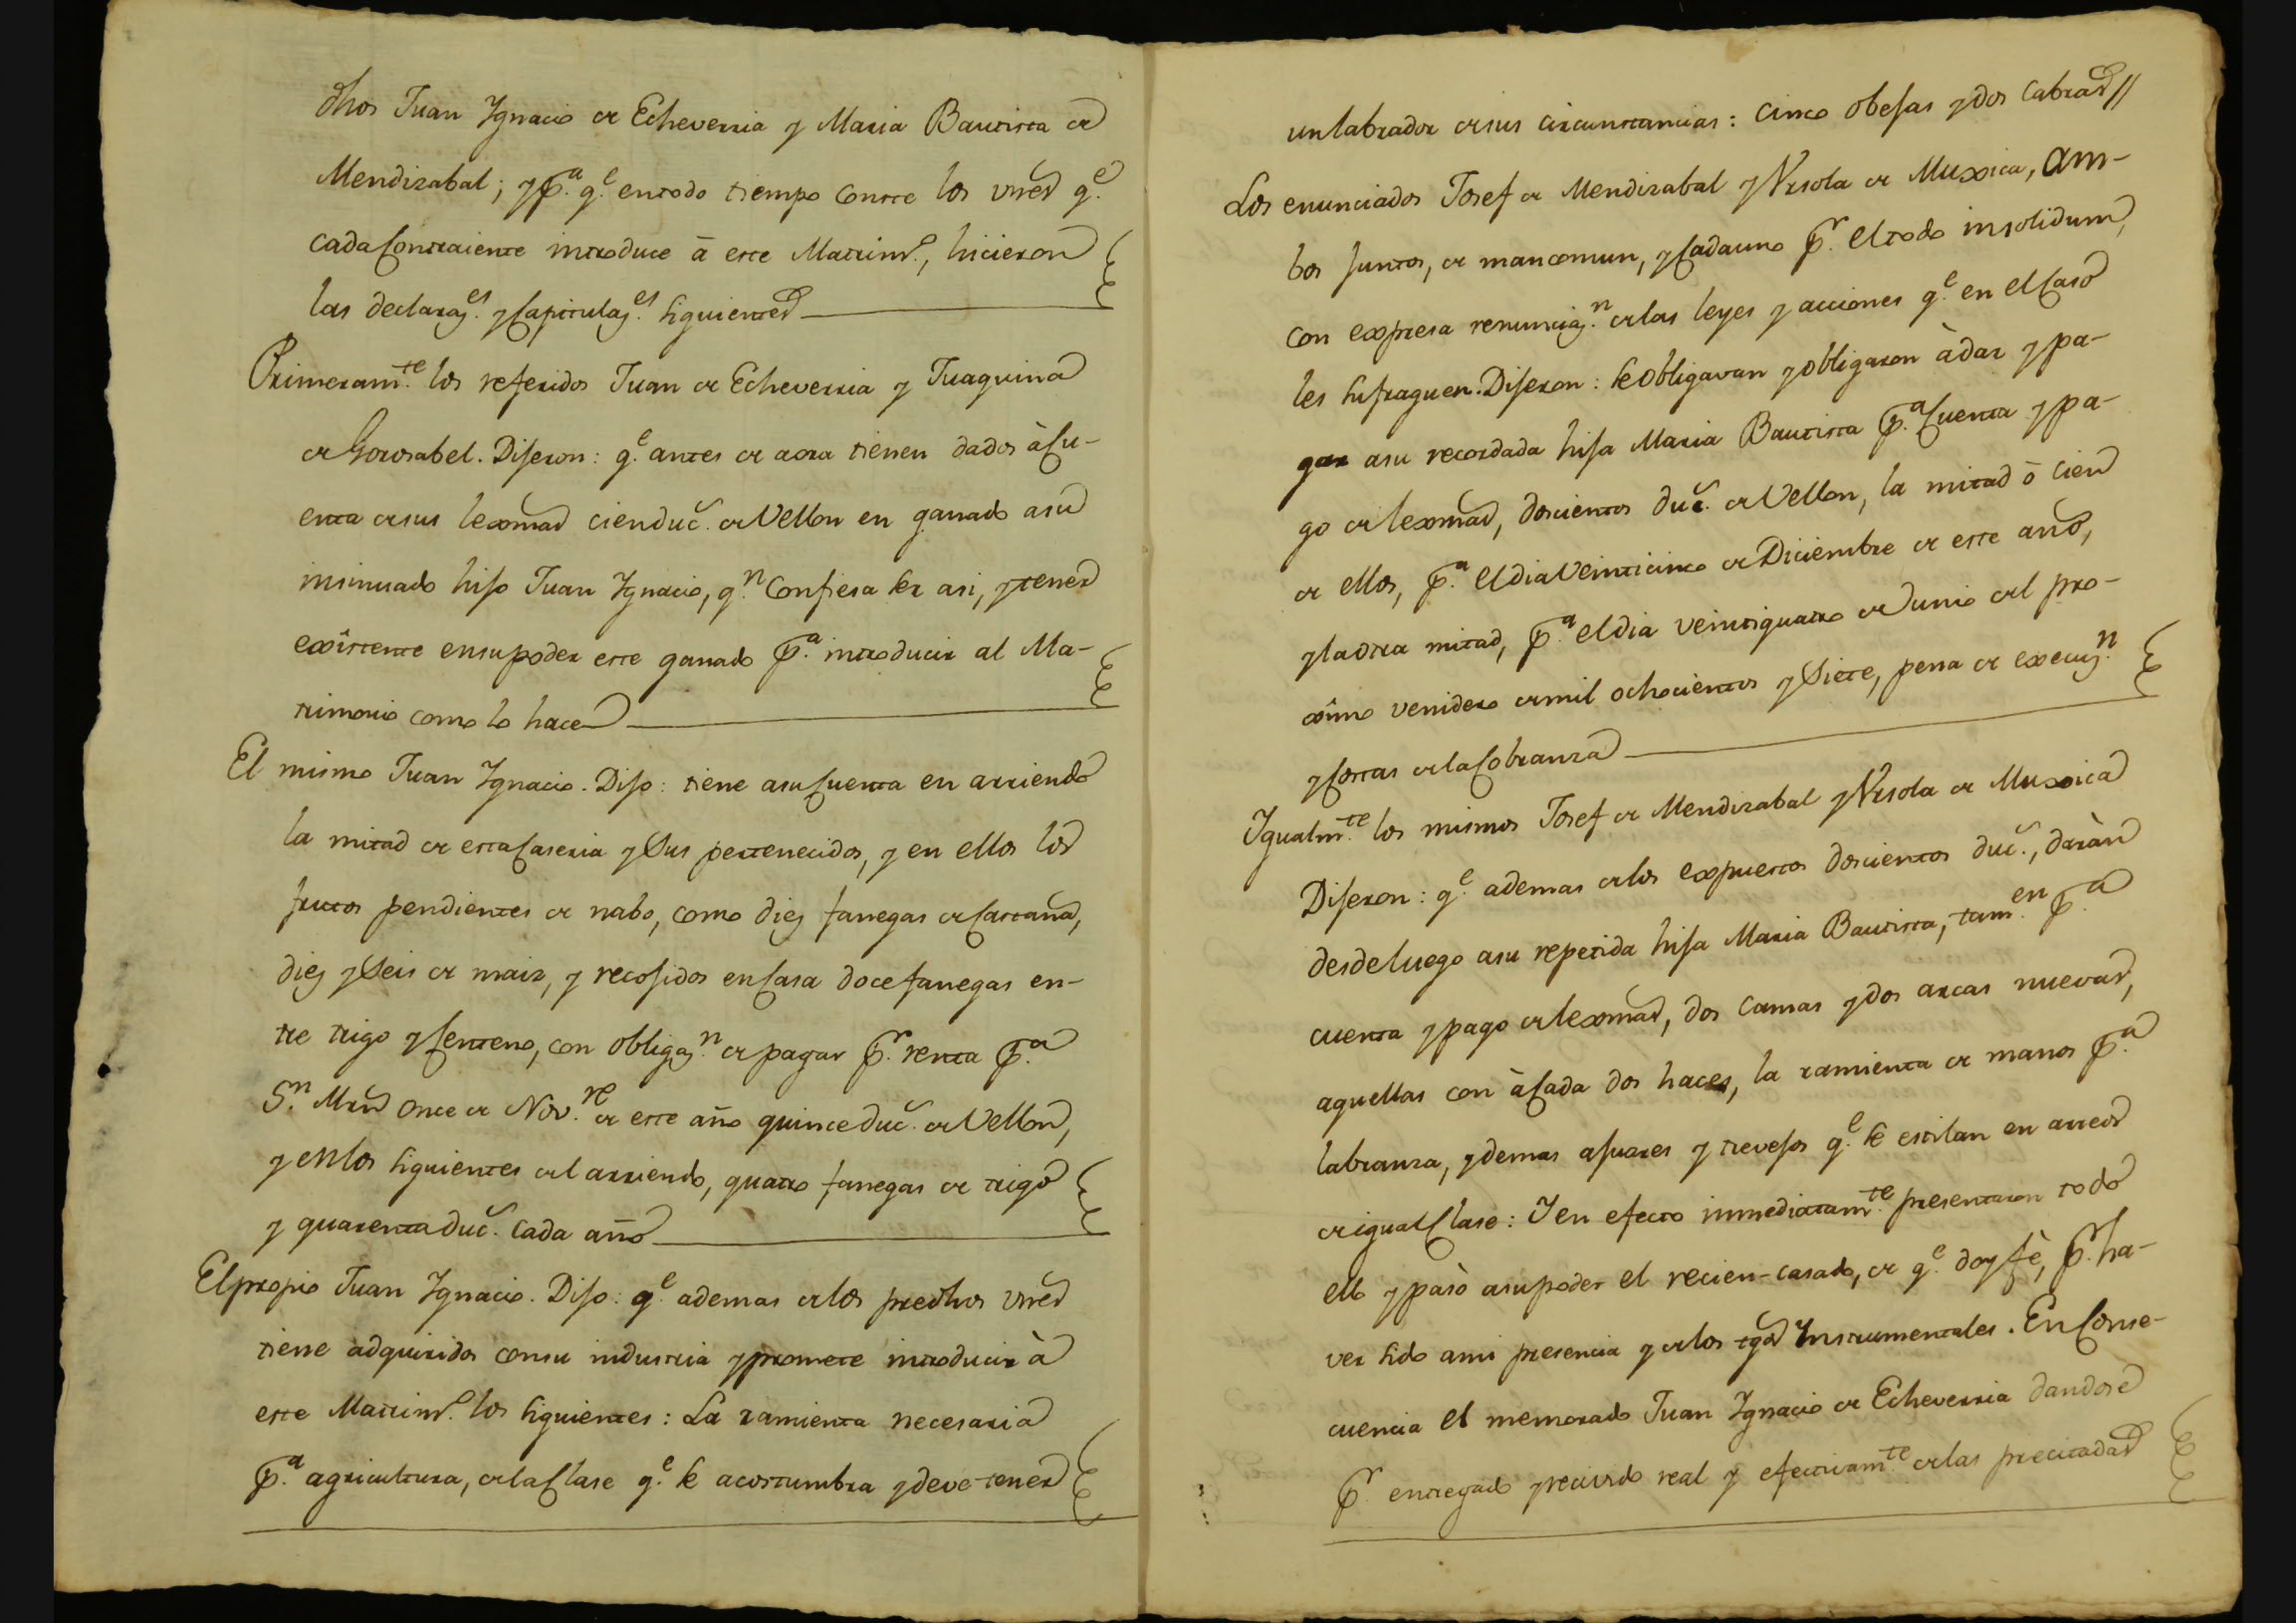 dhos Juan Ygnacio de Echeverria y Maria Bautista de
Mendizabal; y p.ª q.e en todo tiempo conste los vnes q.e
cada Contraiente introduce à este Matrim.o, hicieron
las declaraz.es y Capitulaz.es siguientes
Primeram.te los referidos Juan de Echeverria y Juaquina
de Gorosabel. Dijeron: q.e antes de aora tienen dados à Cu-
enta de sus lexmas cien duc. de Vellon en ganado a su
insinuado hijo Juan Ygnacio, q.n Confiesa ser asi, y tener
exîstente en su poder este ganado p.ª introducir al Ma-
trimonio como lo hace
El mismo Juan Ygnacio. Dijo: tiene a su Cuenta en arriendo
la mitad de esta Caseria y Sus pertenecidos, y en ellos los
frutos pendientes de nabo, como diez fanegas de Castaña,
diez y Seis de maiz, y recojidos en Casa doce fanegas en-
tre trigo y Centeno, con obligaz.n de pagar p.r renta p.ª
S.n Mrn Once de Nov.re de este año quince duc. de Vellon,
y en los siguientes del arriendo, quatro fanegas de trigo
y quarenta duc. cada año
El propio Juan Ygnacio. Dijo: q.e ademas de los predhos vnes
tiene adquiridos con su industria y promete introducir à
este Matrim.o los siguientes: La ramienta necesaria
p.ª agricultura, de la Clase q.e se acostumbra y deve tener
un labrador de sus circunstancias: Cinco obejas y dos Cabras //
Los enunciados Josef de Mendizabal y Vrsola de Muxica, am-
bos juntos, de mancomun, y Cada uno p.r el todo insolidum,
con expresa renunciaz.n de las leyes y acciones q.e en el Caso
les sufraguen. Dijeron: se obligavan y obligaron à dar y pa-
gar a su recordada hija Maria Bautista p.ª Cuenta y pa-
go de lexmas, doscientos duc. de Vellon, la mitad ò cien
de ellos, p.ª el dia Veinticinco de Diciembre de este año,
y la otra mitad, p.ª el dia veintiquatro de Junio del pro-
xîmo venidero de mil ochocientos y Siete, pena de execuz.n
y Costas de la Cobranza
Ygualm.te los mismos Josef de Mendizabal y Vrsola de Muxica
Dijeron: q.e ademas de los expuestos doscientos duc., daràn
desde luego a su repetida hija Maria Bautista, tam.en p.ª
cuenta y pago de lexmas, dos Camas y dos arcas nuevas,
aquellas con à Cada dos haces, la ramienta de manos p.ª
labranza, y demas ajuares y trevejos q.e se estilan en arreos
de igual Clase: Y en efecto inmediatam.te presentaron todo
ello y pasò a su poder el recien-casado, de q.e doy fè, p.r ha-
ver sido a mi presencia y de los tgos Ynstrumentales. En Conse-
cuencia el memorado Juan Ygnacio de Echeverria dandose
p.r entregado y recivido real y efectivam.te de las precitadas